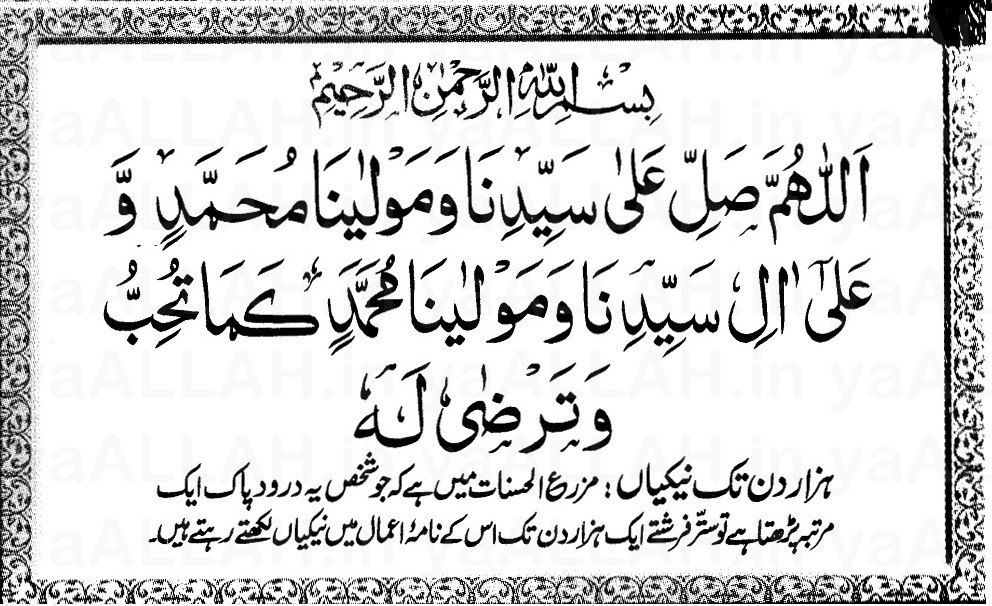 بِسْمِ اللّٰہِ الرَّحْمٰنِ الرَّحِیْمِ
اَللّٰھُمَّ صَلِّ عَلٰی سَیِّدِنَا وَمَوْلٰینَا مُحَمَّدٍ وَّ
عَلٰٓی اٰلِ سَیِّدِنَا وَمَوْلٰینَا مُحَمَّدٍ کَمَا تُحِبُّ
وَتَرْضٰی لَہٗ
ہزار دن تک نیکیاں: مزرع الحسنات میں ہے کہ جو شخص یہ درود پاک ایک
مرتبہ پڑھتا ہے تو ستّر فرشتے ایک ہزار دن تک اس کے نامۂ اعمال میں نیکیاں لکھتے رہتے ہیں۔
yaALLAH.in